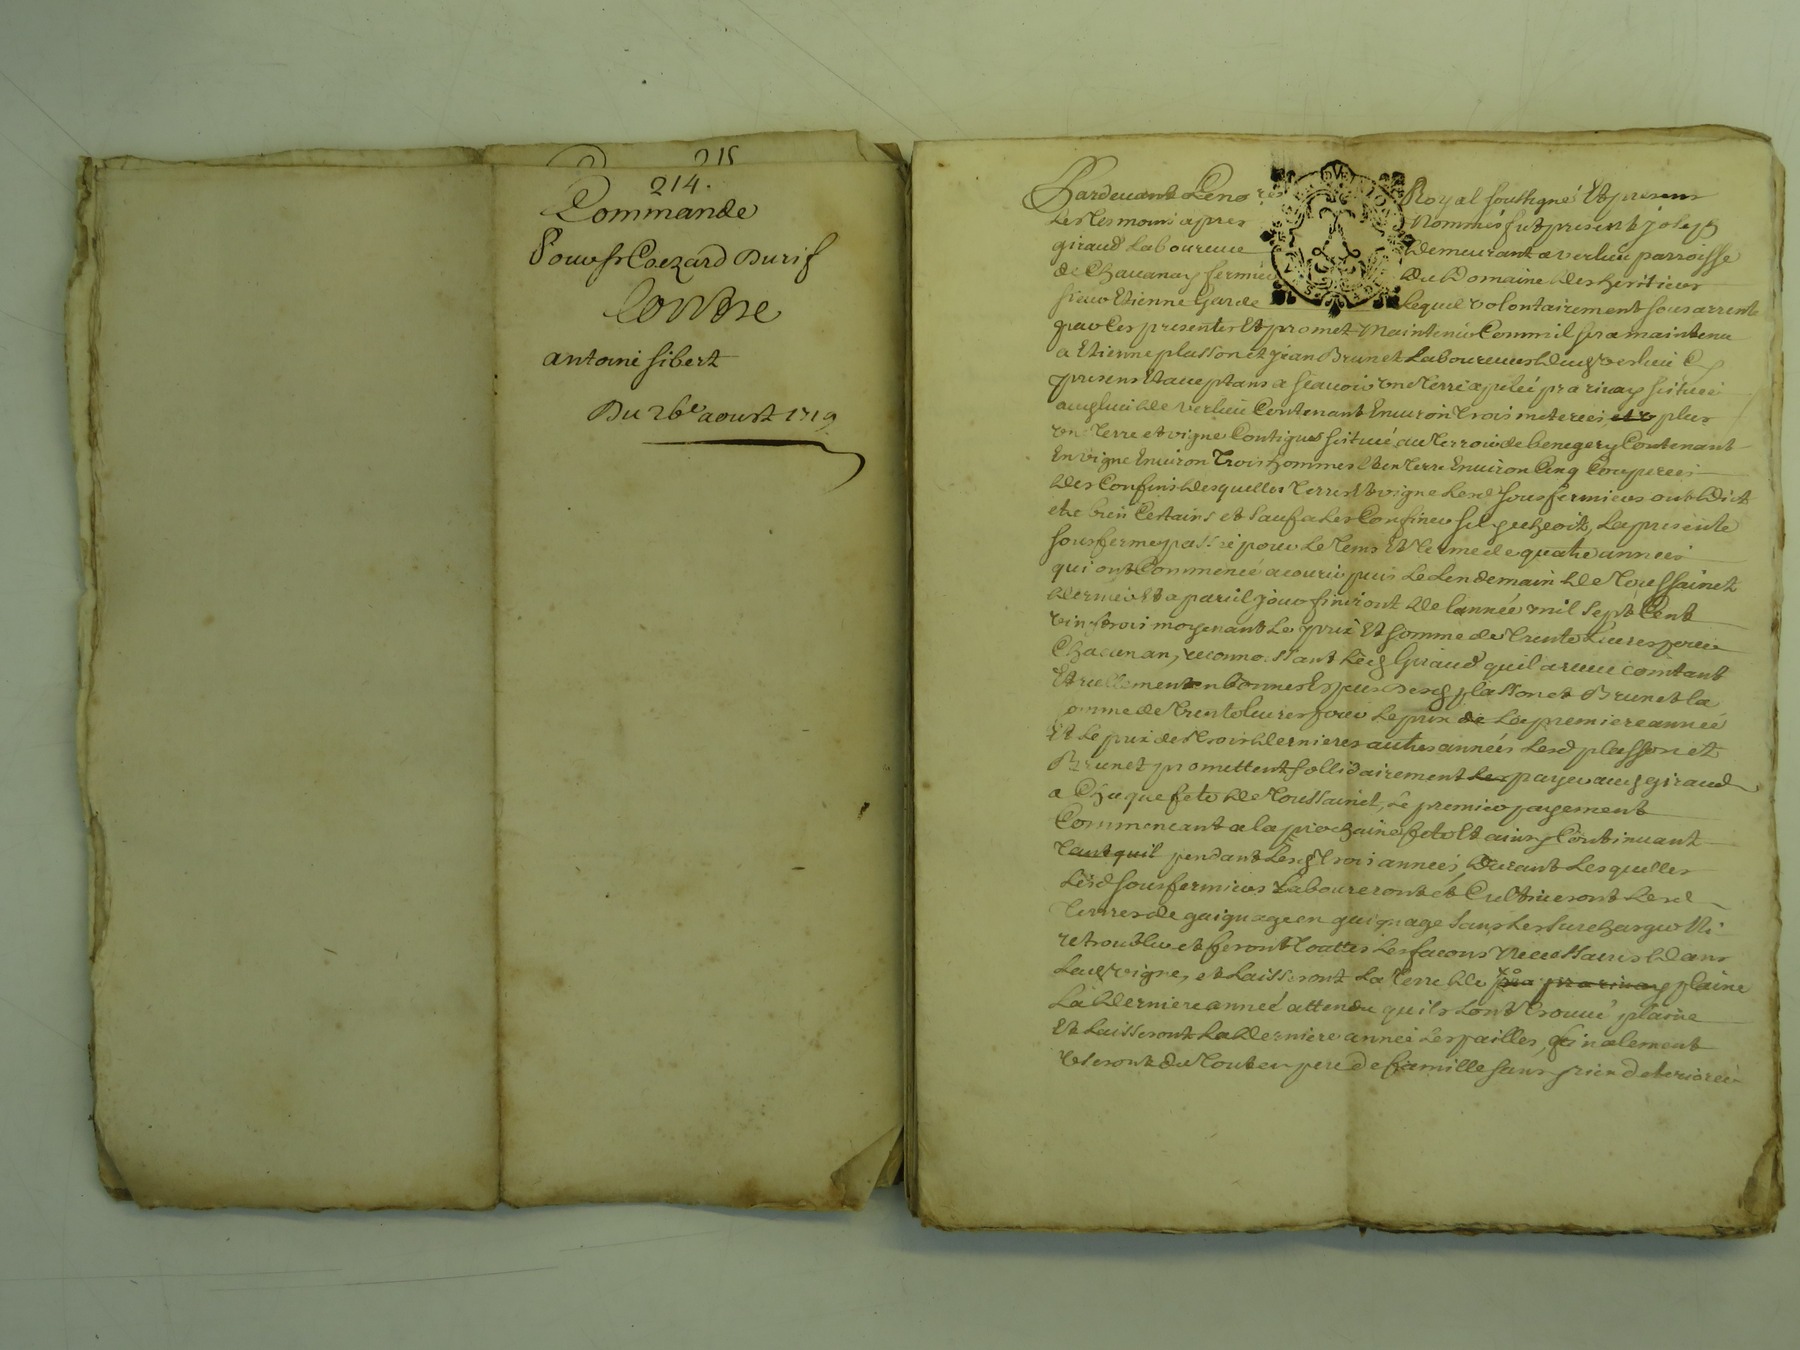 215
214.
Commande
Pour sr Coezard Durif
Contre
antoine sibert
Du 26e aoust 1719
Pardevant Le no re Royal soussigné Et presens
Les Tesmoins apres Nommés fut present joseph
giraud Laboureur demeurant a verlieu parroisse
de Chavanay fermier du Domaine des heritiers
sieur Etienne Garde Lequel volontairement sousarrente
par Ces presentes Et promet Maintenir Comm il sera maintenu
a Etienne plasson et jean Brunet Laboureurs dud verlieu
presens Et acceptans a scavoir une Terre apelée pra rivay scituée
aud lieu de verlieu Contenant Environ Trois meterées plus
un Terre et vigne Contigues scitué au Terroir de Contenant
En vigne Environ Trois hommes Et en Terre Environ Cinq Couperées
des Confins desquelles Terres Et vigne Lesd sousfermiers ont dict
etre bien Certains et sauf a Les Confiner sil y echeoit, La presente
sousferme passée pour Le Tems Et Terme de quatre années
qui ont Commencé a courir puis Le Lendemain de Toussainct
dernier Et a pareil jour finiront de lannée mil sept Cent
vingt trois moyenant Le prix Et somme de Trente Livres pour
Chacun an, reconnoissant Led Giraud quil a receu comtant
Et reellement en bonnes Especes desd plasson et Brunet la
omme de trente livres pour Le prix de La premiere année
Et Le prix des Trois dernieres autres années Lesd plasson et
Brunet promettent sollidairement Les payer aud giraud
a Chaque fete de Toussainct, Le premier payement
Commencant a la prochaine fete Et ainsy Continuant
Tant quil pendant Lesd Trois années, Durant Lesquelles
Lesd sousfermiers Laboureront et Cultiveront Lesd
Terres de guignage en guignage sans Les surcharger Ni
retroubler et feront Touttes Les facons Necessaires dans
Lad vigne, et Laisseront La Terre de pra rivay plaine
La derniere année attendu quils Lont Trouvé plaine
Et Laisseront La derniere année Les pailles, finalement
useront du Tout en pere de famille sans rien deteriorer